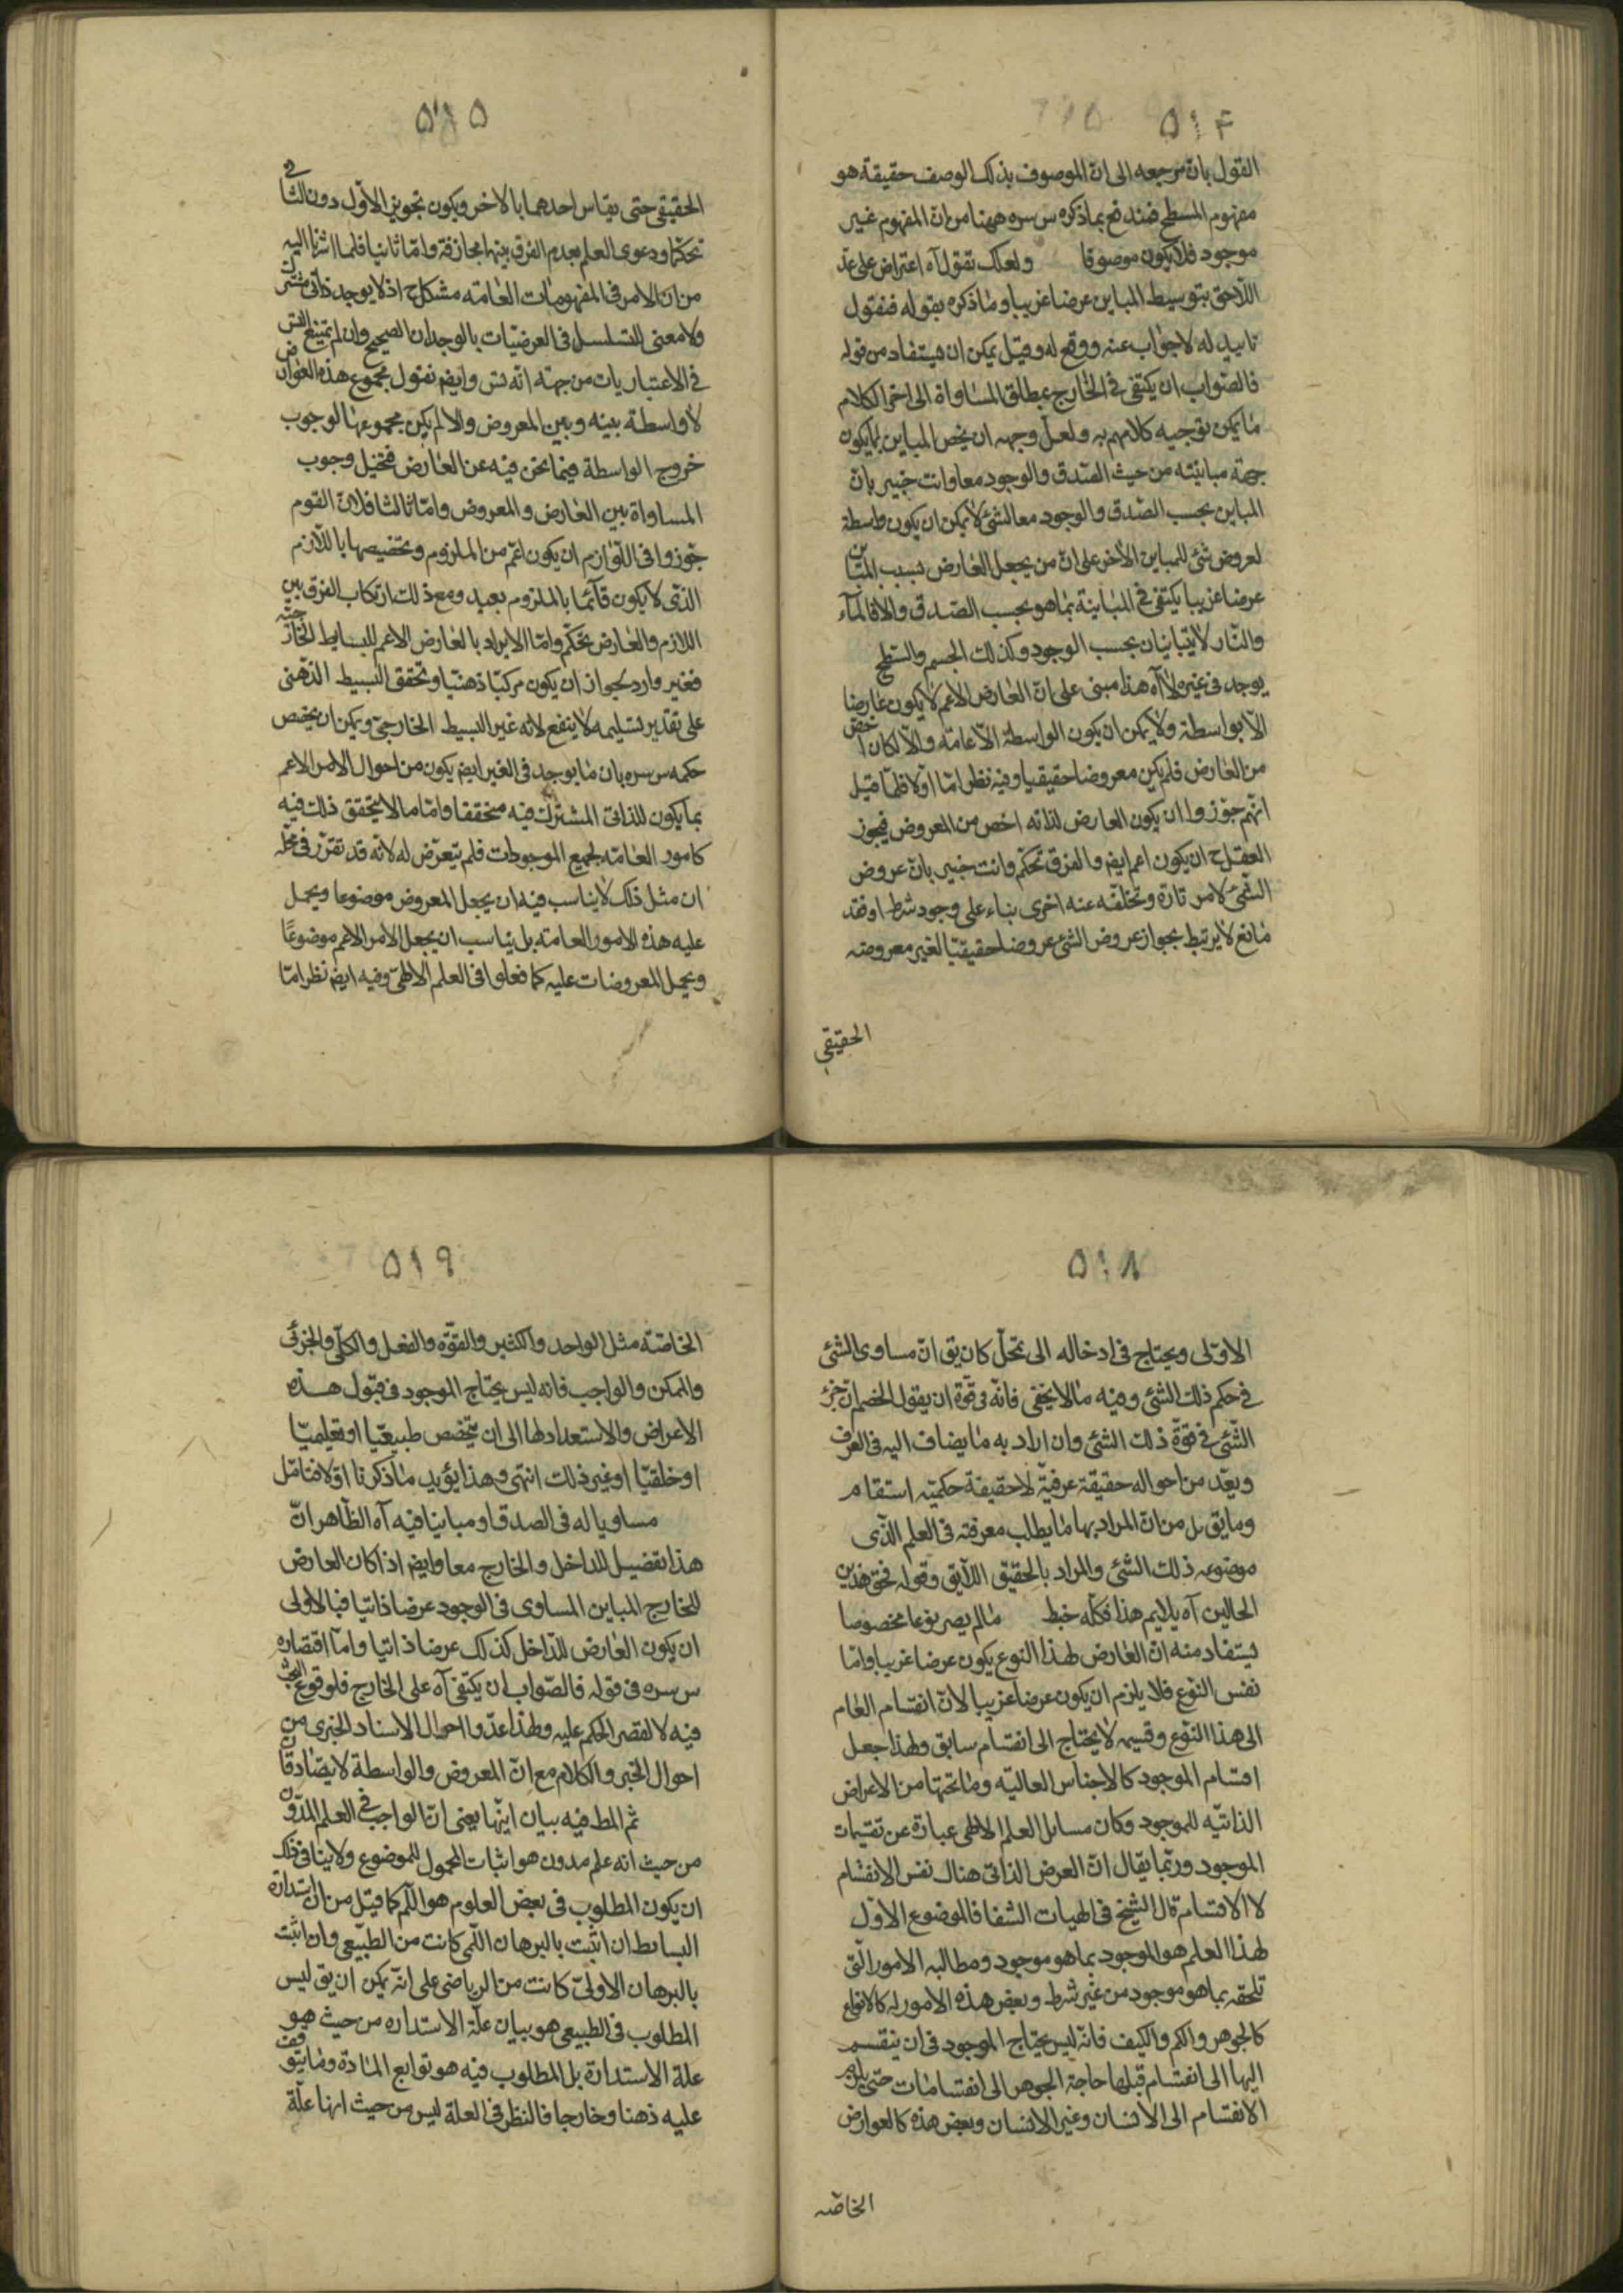 ٥١٤
القول بان مرجعه الى ان الموصوف بذلك الوصف حقيقة هو
مفهوم المسطح فندفع بما ذكره س سره ههنا من ان المفهوم غير
موجود فلا يكون موصوفا ولعلك تقول آه اعتراض على عد
اللاحق بتوسيط المباين عرضا غريبا وما ذكره بقوله فنقول
تاييد له لا جواب عنه ووقع له وقيل يمكن ان يستفاد من قوله
فالصواب ان يكتفى فى الخارج بمطلق المساواة الى اخر الكلام
ما يمكن توجيه كلامهم به ولعل وجهه ان يخص المباين بما يكون
جهة مباينته من حيث الصدق والوجود معا وانت خبير بان
المباين بحسب الصدق والوجود معا لشئ لا يمكن ان يكون واسطة
لعروض شئ للمباين الاخر على ان من يجعل العارض بسبب المباين
عرضا غريبا يكتفى فى المباينة بما هو بحسب الصدق والا فالماء
والنار لا يتباينان بحسب الوجود وكذلك الجسم والسطح
يوجد فى غيره لا آه هذا مبنى على ان العارض الاعم لا يكون عارضا
الا بواسطة ولا يمكن ان يكون الواسطة الا عامة والا لكان اخص
من العارض فلم يكن معروضا حقيقيا وفيه نظر اما اولا فلما قيل
انهم جوزوا ان يكون العارض لذاته اخص من المعروض فيجوز
العقل ح ان يكون اعم ايض والفرق تحكم وانت خبير بان عروض
الشئ لامر تارة وتخلفه عنه اخرى بناء على وجود شرط او فقد
مانع لا يرتبط بجواز عروض الشئ عروضا حقيقيا لغير معروضه
الحقيقى
٥١٥
الحقيقى حتى يقاس احدهما بالاخر ويكون تجويز الاول دون الثانى
تحكما ودعوى العلم بعدم الفرق بينهما مجازفة واما ثانيا فلما اشرنا اليه
من ان الامر فى المفهومات العامة مشكل ح اذ لا يوجد ذاتى مشترك
ولا معنى للتسلسل فى العرضيات بالوجدان الصحيح وان لم يمتنع التس
فى الاعتباريات من جهة انه تس وايض نقول مجموع هذه العوارض
لا واسطة بينه وبين المعروض والا لم يكن مجموعها لوجوب
خروج الواسطة فيما نحن فيه عن العارض فتخيل وجوب
المساواة بين العارض والمعروض واما ثالثا فلان القوم
جوزوا فى اللوازم ان يكون اعم من الملزوم وتخصيصها باللازم
الذى لا يكون قائما بالملزوم بعيد ومع ذلك ارتكاب الفرق بين
اللازم والعارض تحكم واما الايراد بالعارض الاعم للبسايط الخارجية
فغير وارد لجواز ان يكون مركبا ذهنيا وتحقق البسيط الذهنى
على تقدير تسليمه لا ينفع لانه غير البسيط الخارجى ويمكن ان يخص
حكمه س سره بان ما يوجد فى الغير ايض يكون من احوال الامر الاعم
بما يكون للذاتى المشترك فيه متحققا واما ما لا يتحقق ذلك فيه
كامور العامة لجميع الموجودات فلم يتعرض له لانه قد تقرر فى محله
ان مثل ذلك لا يناسب فيه ان يجعل المعروض موضوعا ويحمل
عليه هذه الامور العامة بل يناسب ان يجعل الامر الاعم موضوعا
ويحمل المعروضات عليه كما فعلوا فى العلم الالهى وفيه ايض نظر اما
٥١٨
الاولى ويحتاج فى ادخاله الى تمحل كان يق ان مساوى الشئ
فى حكم ذلك الشئ وفيه ما لا يخفى فانه فى قوة ان يقول الخصم ان جزء
الشئ فى قوة ذلك الشئ وان اراد به ما يضاف اليه فى العرف
ويعد من احواله حقيقة عرفية لا حقيقة حكمية استقام
وما يق بل من ان المراد بها ما يطلب معرفته فى العلم الذى
موضوعه ذلك الشئ والمراد بالحقيق اللايق وقوله فحق هذين
الحالين آه يلايم هذا فكله خبط ما لم يصر نوعا مخصوصا
يستفاد منه ان العارض لهذا النوع يكون عرضا غريبا واما
نفس النوع فلا يلزم ان يكون عرضا غريبا لان انقسام العام
الى هذا النوع وقسيمه لا يحتاج الى انقسام سابق ولهذا جعل
اقسام الموجود كالاجناس العالية وما تحتها من الاعراض
الذاتية للموجود وكان مسائل العلم الالهى عبارة عن تقسيمات
الموجود وربما يقال ان العرض الذاتى هناك نفس الانقسام
لا الاقسام قال الشيخ فى الهيات الشفا فالموضوع الاول
لهذا العلم هو الموجود بما هو موجود ومطالبه الامور التى
تلحقه بما هو موجود من غير شرط وبعض هذه الامور له كالانواع
كالجوهر والكم والكيف فانه ليس يحتاج الموجود فى ان ينقسم
اليها الى انقسام قبلها حاجة الجوهر الى انقسامات حتى يلزمه
الانقسام الى الانسان وغير الانسان وبعض هذه كالعوارض
الخاصه
٥١٩
الخاصة مثل الواحد والكثير والقوة والفعل والكلى والجزئى
والممكن والواجب فانه ليس يحتاج الموجود فى قبول هذه
الاعراض والاستعداد لها الى ان يتخصص طبيعيا او تعليميا
او خلقيا او غير ذلك انتهى وهذا يؤيد ما ذكرنا اولا فتامل
مساويا له فى الصدق او مباينا فيه آه الظاهر ان
هذا تفصيل للداخل والخارج معا وايض اذا كان العارض
للخارج المباين المساوى فى الوجود عرضا ذاتيا فبالاولى
ان يكون العارض للداخل كذلك عرضا ذاتيا واما اقتصاره
س سره فى قوله فالصواب ان يكتفى آه على الخارج فلوقوع البحث
فيه لا لقصر الحكم عليه ولهذا عدوا احوال الاسناد الخبرى من
احوال الخبر والكلام مع ان المعروض والواسطة لا يتصادقان
ثم المط فيه بيان انيتها يعنى ان الواجب فى العلم المدون
من حيث انه علم مدون هو اثبات المحمول للموضوع ولا ينافى ذلك
ان يكون المطلوب فى بعض العلوم هو اللم كما قيل من ان استدارة
البسائط ان اثبت بالبرهان اللمى كانت من الطبيعى وان اثبت
بالبرهان الاولى كانت من الرياضى على انه يمكن ان يق ليس
المطلوب فى الطبيعى هو بيان علة الاستداره من حيث هو
علة الاستدارة بل المطلوب فيه هو توابع المادة وما يتوقف
عليه ذهنا وخارجا فالنظر فى العلة ليس من حيث انها علة